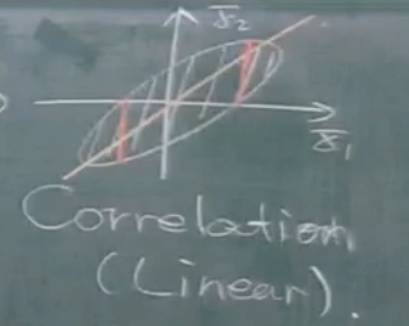 x̄₂
x̄₁
Correlation
(Linear).